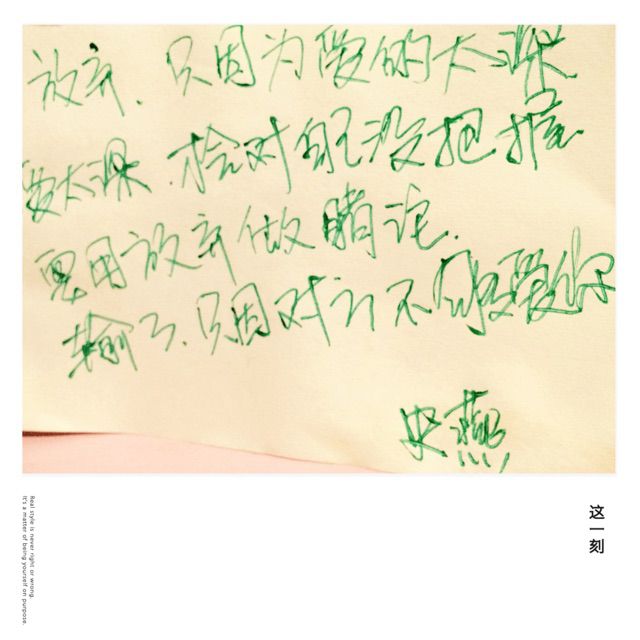 放弃、只因为爱的太深
爱太深.恰对自己没把握
要用放弃做赌注.
输了.只因对方不够爱你
史燕
这一刻
Real style is never right or wrong.
It's a matter of being yourself on purpose.